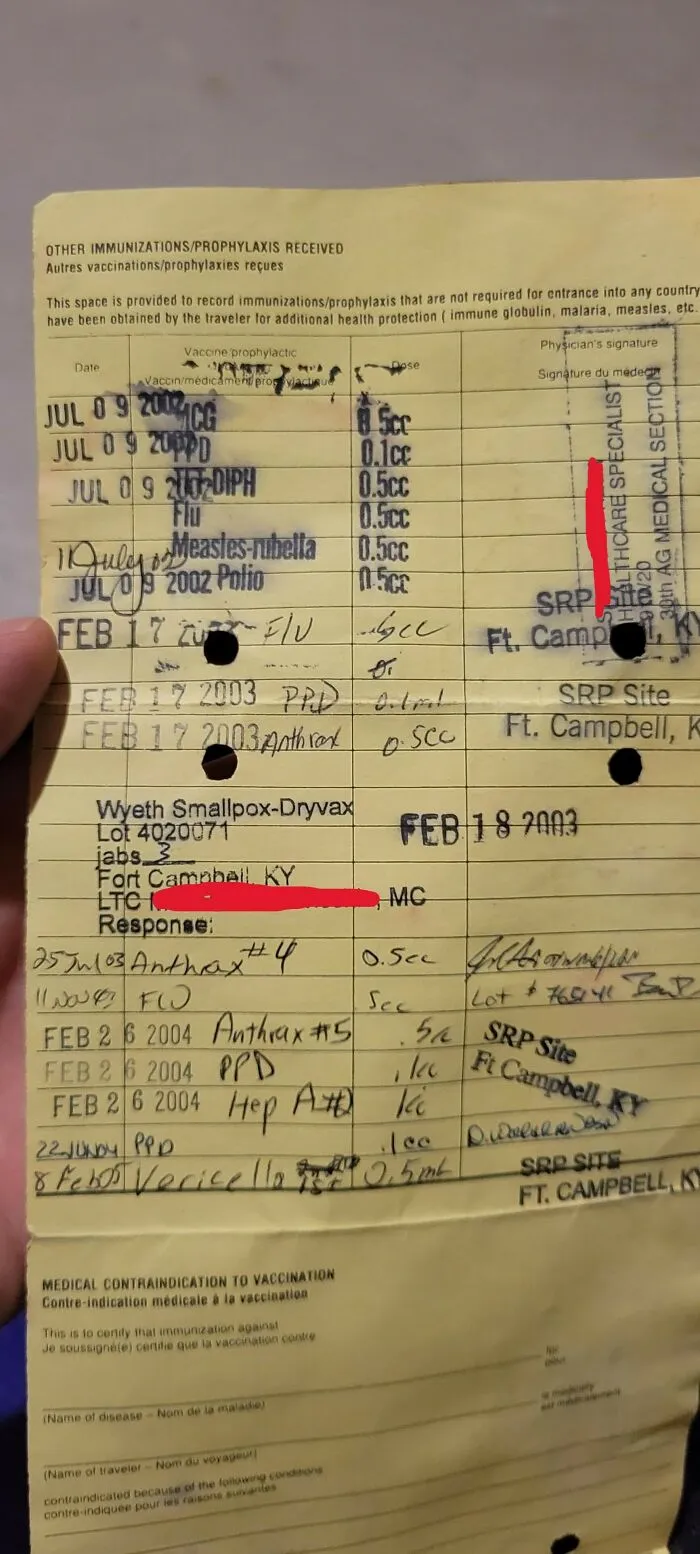 OTHER IMMUNIZATIONS/PROPHYLAXIS RECEIVED
Autres vaccinations/prophylaxies reçues
This space is provided to record immunizations/prophylaxis that are not required for entrance into any country
have been obtained by the traveler for additional health protection ( immune globulin, malaria, measles, etc.
Date Vaccine prophylactic Dose Physician's signature
Vaccin/médicament/prophylactique Signature du médecin
JUL 09 2002 0.5cc
JUL 09 2002 PPD 0.1cc
JUL 09 2002 DIPH 0.5cc
Flu 0.5cc
11 July 02 Measles-rubella 0.5cc
JUL 09 2002 Polio 0.5cc
HEALTHCARE SPECIALIST
30th AG MEDICAL SECTION
SRP Site
FEB 17 Flu Ft. Campbell, KY
FEB 17 2003 PPD 0.1ml SRP Site
FEB 17 2003 Anthrax 0.5cc Ft. Campbell, K
Wyeth Smallpox-Dryvax
Lot 4020071 FEB 18 2003
jabs 3
Fort Campbell, KY
LTC , MC
Response:
25 Jul 03 Anthrax #4 0.5cc
11 Nov Flu 5cc Lot #
FEB 26 2004 Anthrax #5 .5cc SRP Site
FEB 26 2004 PPD .1cc Ft Campbell, KY
FEB 26 2004 Hep A 1cc
22 JUN 04 PPD .1cc
8 Feb 05 Vericella 1st 0.5ml SRP SITE
FT. CAMPBELL, KY
MEDICAL CONTRAINDICATION TO VACCINATION
Contre-indication médicale à la vaccination
This is to certify that immunization against
Je soussigné(e) certifie que la vaccination contre
for
pour
(Name of disease – Nom de la maladie)
is medically
est médicalement
(Name of traveler – Nom du voyageur)
contraindicated because of the following conditions
contre-indiquée pour les raisons suivantes